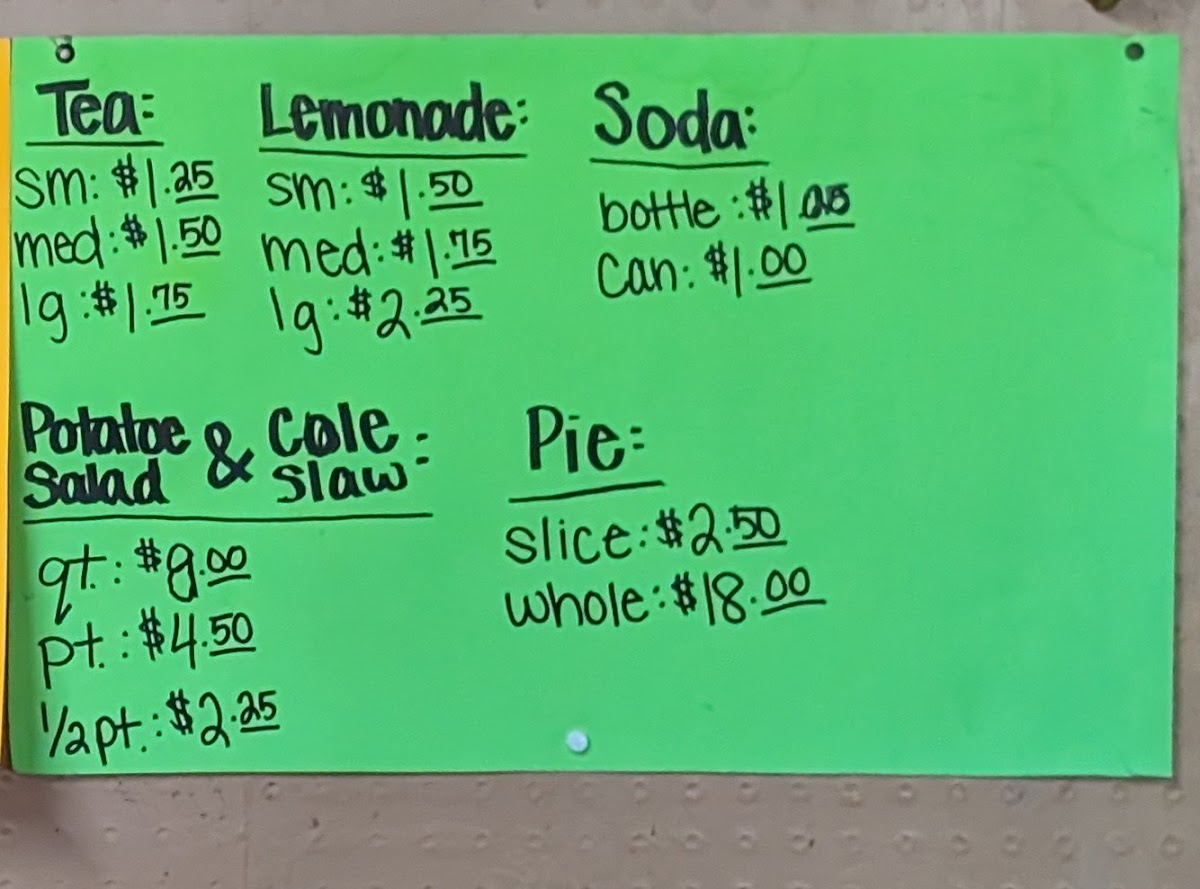 Tea:
sm: $1.25
med: $1.50
lg: $1.75
Lemonade:
sm: $1.50
med: $1.75
lg: $2.25
Soda:
bottle: $1.25
can: $1.00
Potatoe
Salad
& Cole
Slaw:
qt.: $8.00
pt.: $4.50
1/2 pt.: $2.25
Pie:
slice: $2.50
whole: $18.00